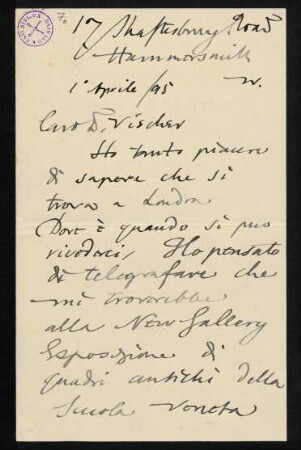 17 Shaftesbury Road
Hammersmith
W.
1° Aprile/95
Caro Dr. Vischer
Ho tanto piacere
di sapere che si
trova a London
Dove è quando si può
rivederci, Ho pensato
di telegrafare che
mi troverebbe
alla New Gallery
Esposizione di
quadri antichi della
Scuola Veneta